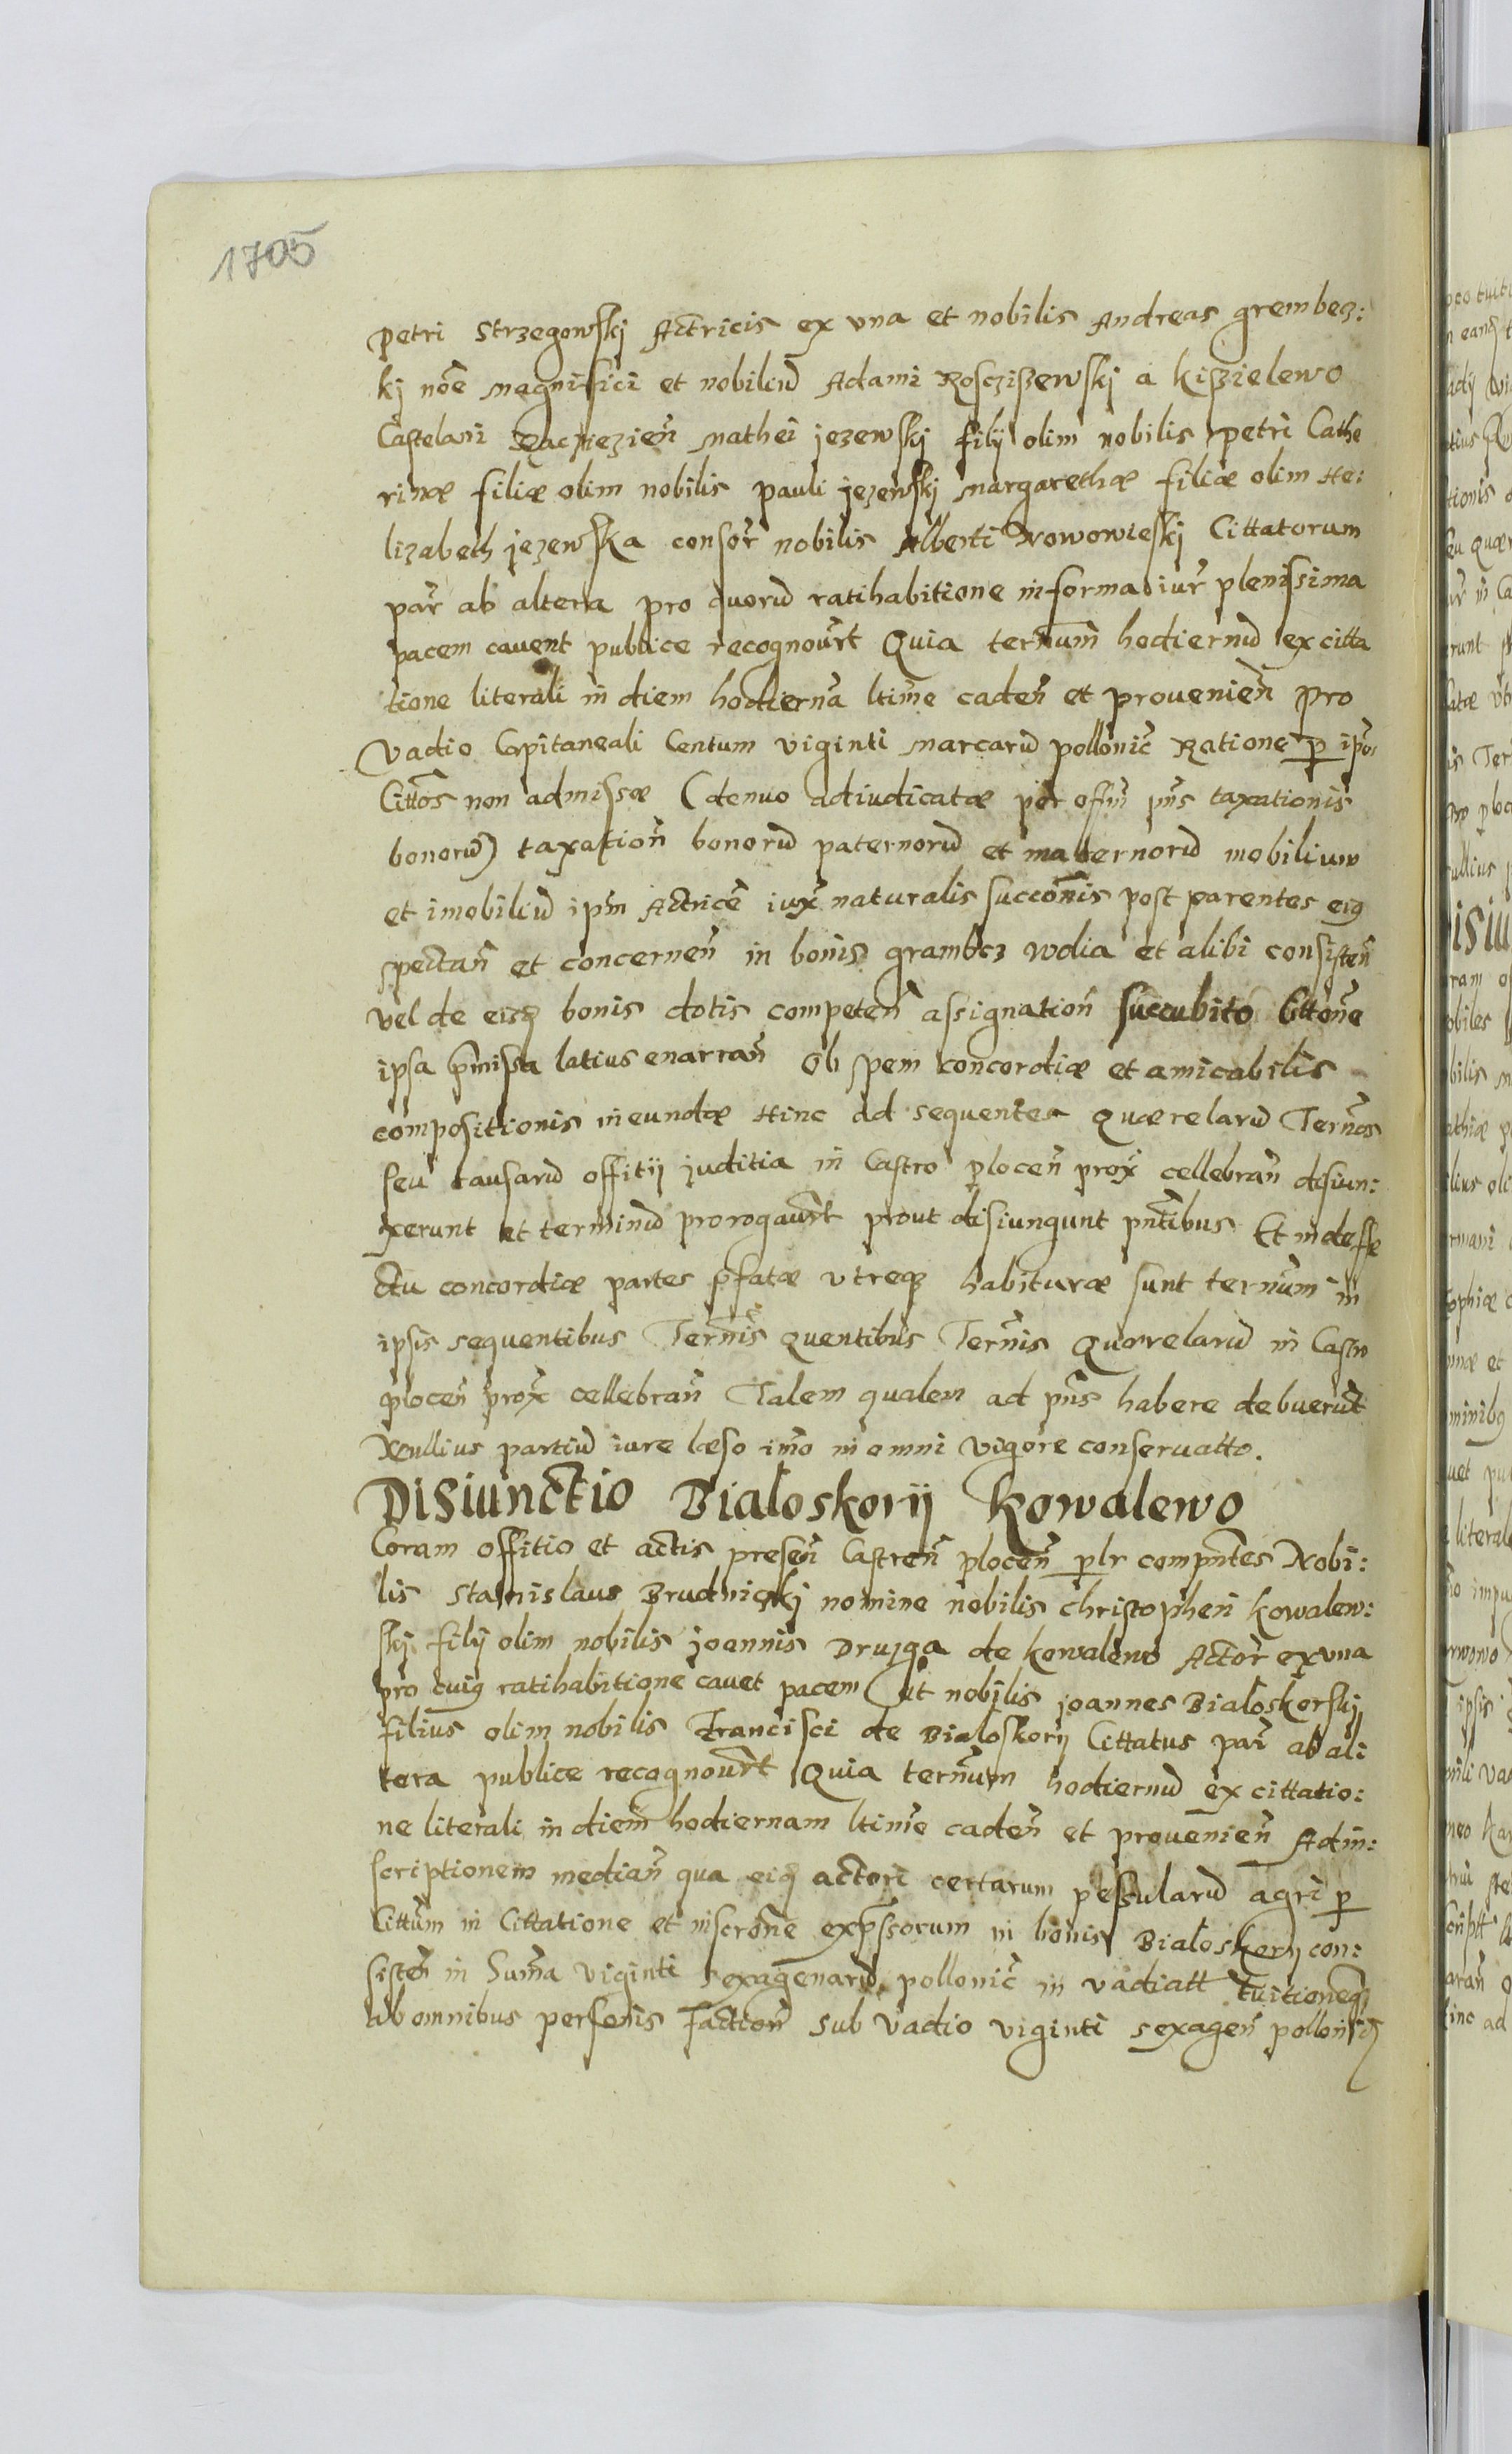 1705
petri Strzegowskj Actricis ex vna et nobilis Andreas grembecz:
kj noē magnifici et nobiliū Adami Roscziszewskj a kiszielewo
Castelani Raczyezieñ mathei jezewskj filij olim nobilis petri Cathe
rinæ filiæ olim nobilis pauli jezewskj margarethæ filiæ olim He:
lizabeth jezewska consor̃ nobilis Alberti Nowowieskj Cittatorum
par̃ ab altera pro quorū ratihabitione in forma iur̃ plenissima
pacem cavent publice recognovr̃t Quia termnum̃ hodiernū ex citta
tione literali in diem hodiernã ltime cadeñ et provenieñ pro
Vadio Capitaneali Centum viginti marcarū pollonic̃ Ratione p̱ ip̃os
Citt̃os non admissæ (denuo adiudicatæ per offm̃ pñs taxationis
bonorū) taxatioñ bonorū paternorū et maternorū mobilium
et imobiliū ip̃m Actricẽ iux̃ naturalis succoñis post parentes eiꝰ
spectañ et concerneñ in bonis grambcz wdia et alibi consisteñ
vel de eisꝗ bonis dotis competeñ assignatioñ succubito Cittoñe
ipsa p̃missa latius enarrañ Ob spem concordiæ et amicabilis
compositionis ineundæ Hinc ad sequentes Quærelarū Terños
seu causarū offitij juditia in Castro ploceñ prox̃ cellebrañ disiun:
xerunt et terminū prorogavr̃t prout disiungunt pñtibus Et in defe
ctu concordiæ partes p̃fatæ vtreqꝫ habituræ sunt termñum in
ipsis sequentibus Terñis quentibus Terñis Quærelarū in Castro
ploceñ prox̃ cellebrañ Talem qualem ad pñs habere debuerũt
Nullius partiū iure læso im̃o in omni vigore conservatto.
Disiunctio Bialoskorij Kowalewo
Coram offitio et actis preseñ Castreñ ploceñ p̱lr compñtes Nobi:
lis Stanislaus Brudnickj nomine nobilis christopheri kowalew:
skj filij olim nobilis joannis Druzga de kowalewo Actor̃ ex vna
pro cuiꝰ ratihabitione cavet pacem et nobilis joannes Bialoskorskij
filius olim nobilis Francisci de Bialoskorij Cittatus par̃ ab al:
tera publice recognovr̃t Quia termñum hodiernū ex cittatio:
ne literali in diem̃ hodiernam ltime cadeñ et provenieñ Ad in:
scriptionem mediañ qua eiꝰ actori certarum peszularū agri p̱
Cittum̃ in Cittatione et inscroñe exp̃ssorum in bonis Bialoskorij con:
sisteñ in Sum̃a viginti sexagenarū pollonic̃ in vadiatt tuitionemꝗ
ab omnibus personis factioñ sub vadio viginti sexageñ pollonic